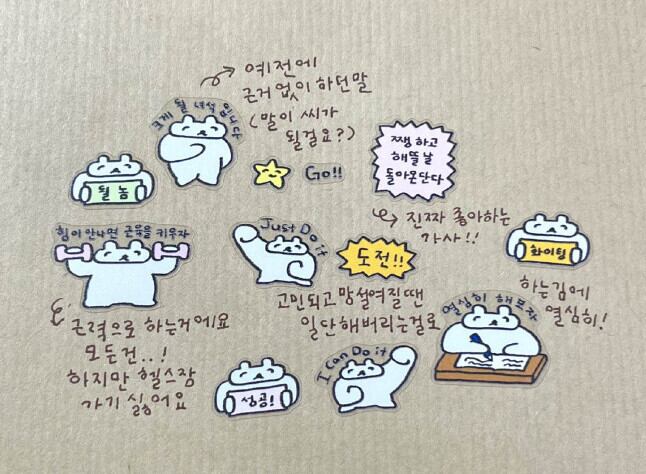 예전에
근거없이 하던말
(말이 씨가
될걸요?)
크게 될 녀석입니다
될 놈
Go!!
쨍하고
해뜰날
돌아온단다
진짜 좋아하는
가사!!
힘이 안나면 근육을 키우자
근력으로 하는거에요
모든건..!
하지만 헬스장
가기 싫어요
Just Do it
도전!!
고민되고 망설여질땐
일단해버리는걸로
화이팅
하는김에
열심히!
열심히 해보자
성공!
I Can Do it